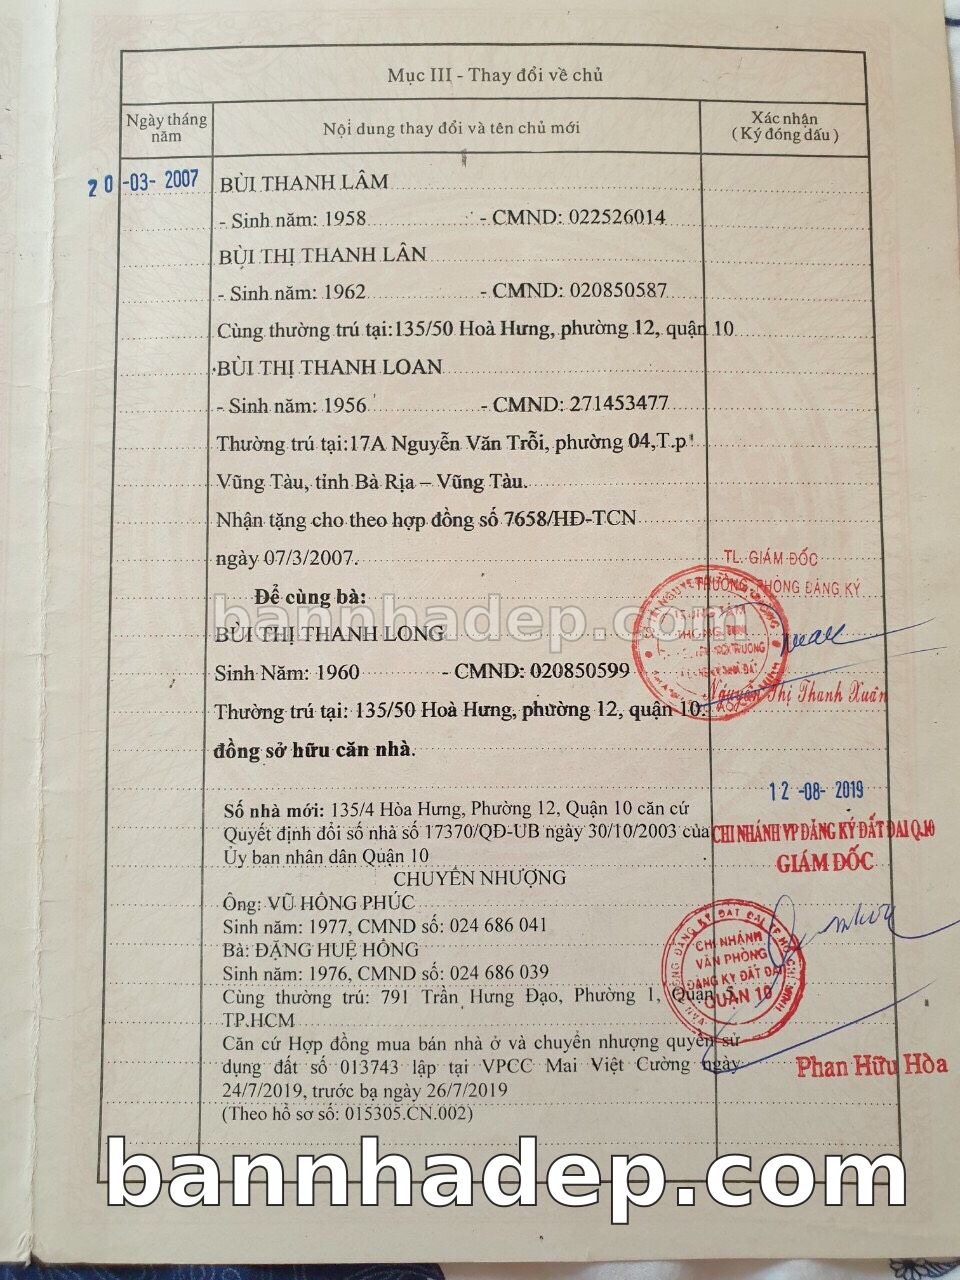 Mục III - Thay đổi về chủ
Ngày tháng năm
Nội dung thay đổi và tên chủ mới
Xác nhận
( Ký đóng dấu )
20 -03- 2007
BÙI THANH LÂM
- Sinh năm: 1958 - CMND: 022526014
BÙI THỊ THANH LÂN
- Sinh năm: 1962 - CMND: 020850587
Cùng thường trú tại:135/50 Hoà Hưng, phường 12, quận 10
BÙI THỊ THANH LOAN
- Sinh năm: 1956 - CMND: 271453477
Thường trú tại:17A Nguyễn Văn Trỗi, phường 04,T.p
Vũng Tàu, tỉnh Bà Rịa – Vũng Tàu.
Nhận tặng cho theo hợp đồng số 7658/HĐ-TCN
ngày 07/3/2007.
TL. GIÁM ĐỐC
TRƯỞNG PHÒNG ĐĂNG KÝ
Để cùng bà:
bannhadep.com
BÙI THỊ THANH LONG
Sinh Năm: 1960 - CMND: 020850599
Nguyễn Thị Thanh Xuân
Thường trú tại: 135/50 Hoà Hưng, phường 12, quận 10.
đồng sở hữu căn nhà.
12 -08- 2019
Số nhà mới: 135/4 Hòa Hưng, Phường 12, Quận 10 căn cứ
Quyết định đổi số nhà số 17370/QĐ-UB ngày 30/10/2003 của
Ủy ban nhân dân Quận 10
CHI NHÁNH VP ĐĂNG KÝ ĐẤT ĐAI Q.10
GIÁM ĐỐC
CHUYỂN NHƯỢNG
Ông: VŨ HỒNG PHÚC
Sinh năm: 1977, CMND số: 024 686 041
Bà: ĐẶNG HUỆ HỒNG
Sinh năm: 1976, CMND số: 024 686 039
Cùng thường trú: 791 Trần Hưng Đạo, Phường 1, Quận 5,
TP.HCM
CHI NHÁNH
VĂN PHÒNG
ĐĂNG KÝ ĐẤT ĐAI
QUẬN 10
Căn cứ Hợp đồng mua bán nhà ở và chuyển nhượng quyền sử
dụng đất số 013743 lập tại VPCC Mai Việt Cường ngày
24/7/2019, trước bạ ngày 26/7/2019
(Theo hồ sơ số: 015305.CN.002)
Phan Hữu Hòa
bannhadep.com